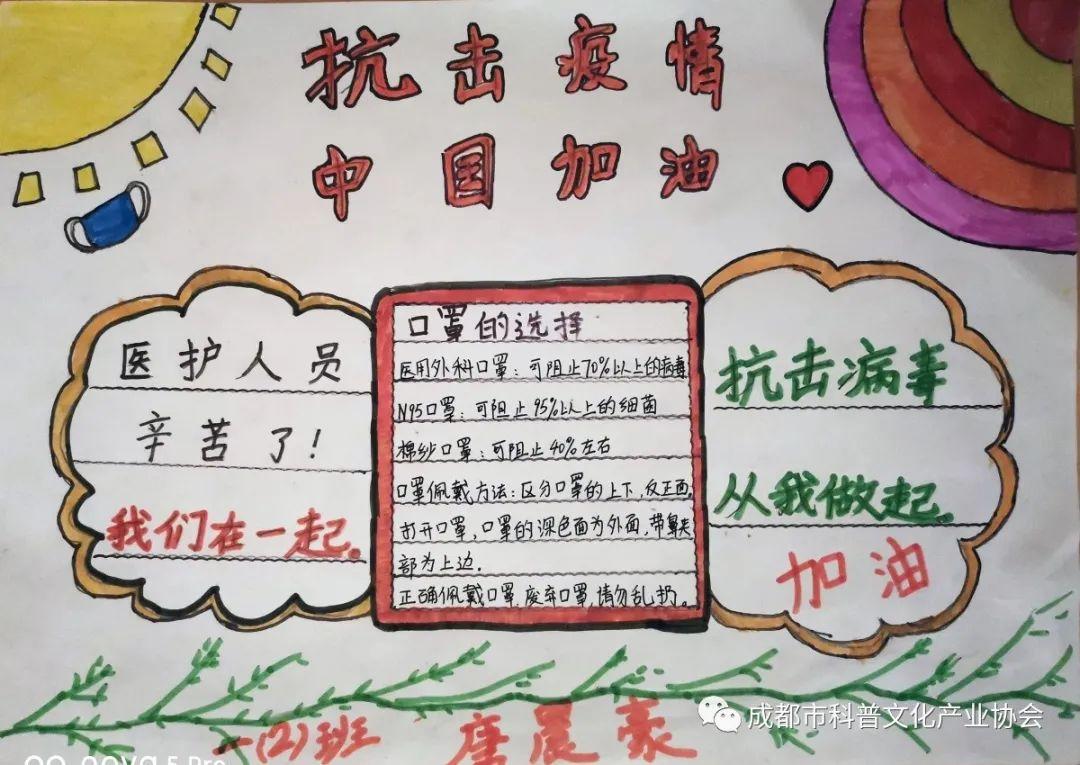 抗击疫情
中国加油
医护人员
辛苦了!
我们在一起。
口罩的选择
医用外科口罩:可阻止70%以上的病毒
N95口罩:可阻止95%以上的细菌
棉纱口罩:可阻止40%左右
口罩佩戴方法:区分口罩的上下,反正面,
打开口罩,口罩的深色面为外面,带鼻夹
部为上边.
正确佩戴口罩,废弃口罩,请勿乱扔。
抗击病毒
从我做起。
加油
一(2)班 唐晨豪
成都市科普文化产业协会
nova 5 Pro